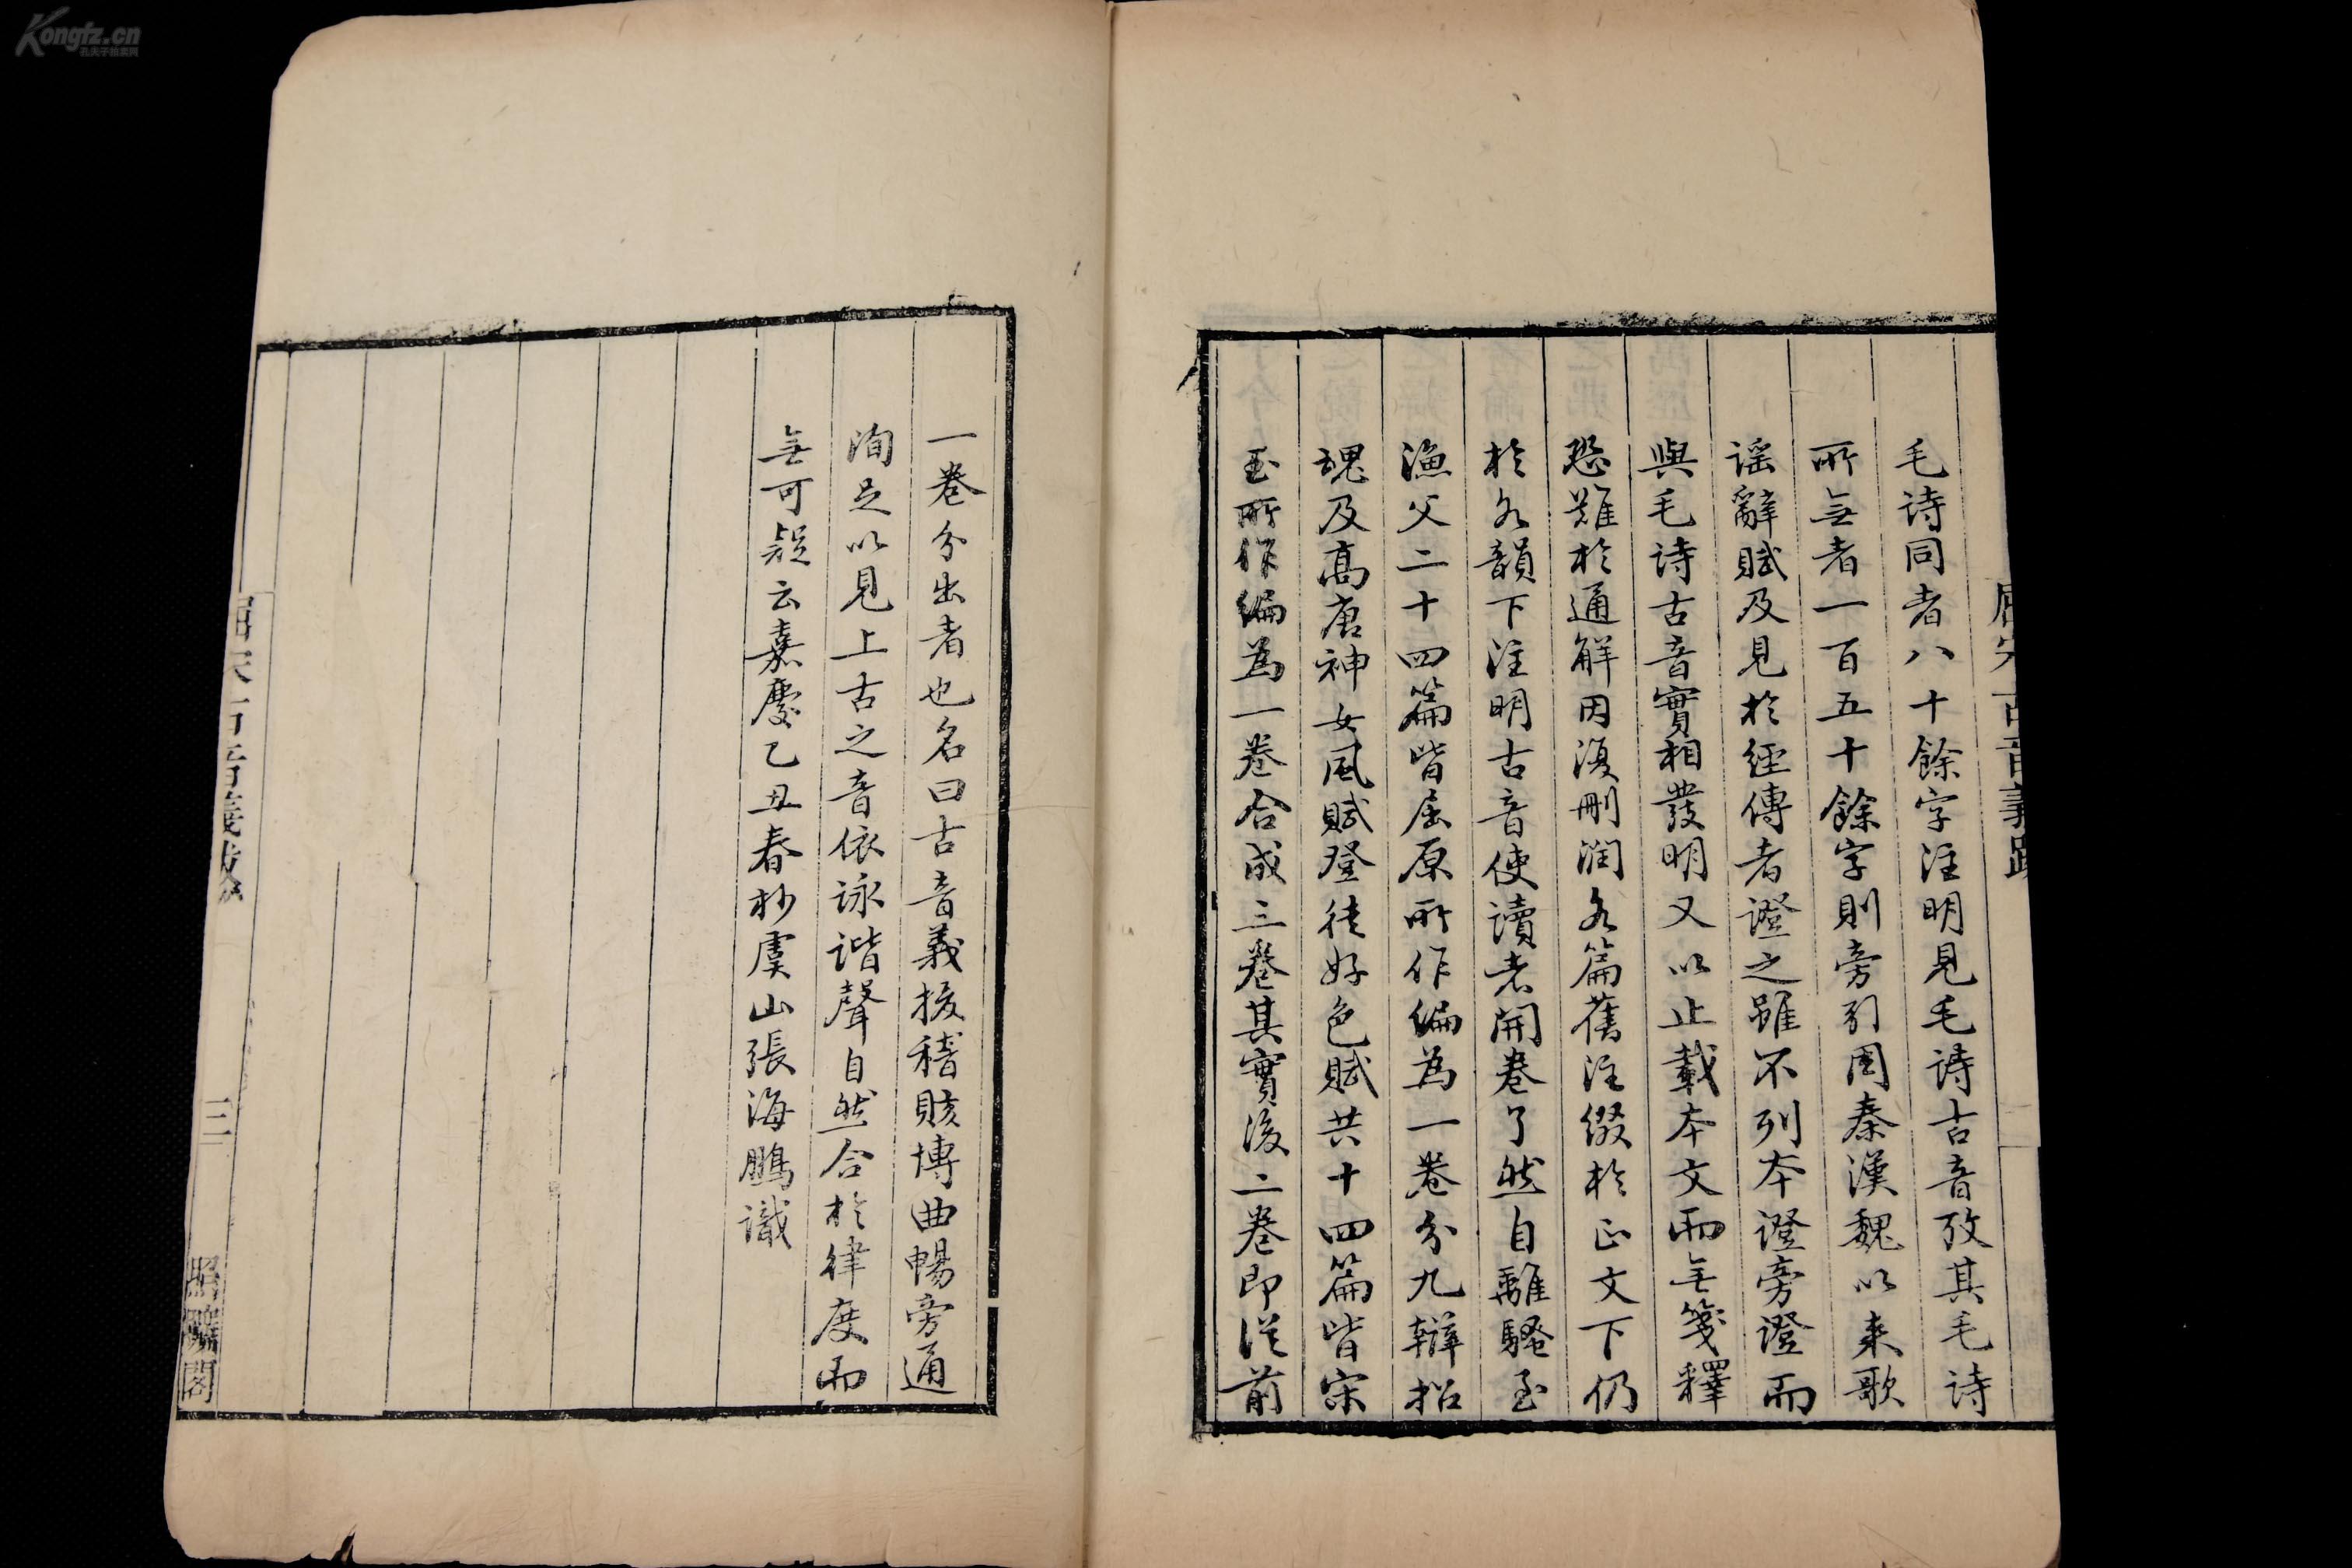 毛詩同者八十餘字注明見毛詩古音攷其毛詩
所無者一百五十餘字則旁引周秦漢魏以來歌
謡辭賦及見於經傳者證之雖不列本證旁證而
與毛詩古音實相發明又以止載本文而無箋釋
恐難於通解因復刪潤各篇舊注綴於正文下仍
於各韻下注明古音使讀者開卷了然自離騷至
漁父二十四篇皆屈原所作編為一卷分九辯招
魂及高唐神女風賦登徒好色賦共十四篇皆宋
玉所作編為一卷合成三卷其實後二卷即從前
一卷分出者也名曰古音義援稽賅博曲暢旁通
洵足以見上古之音依詠諧聲自然合於律度而
無可疑云嘉慶乙丑春杪虞山張海鵬識
三
照曠閣
Kongfz.cn
孔夫子拍卖网